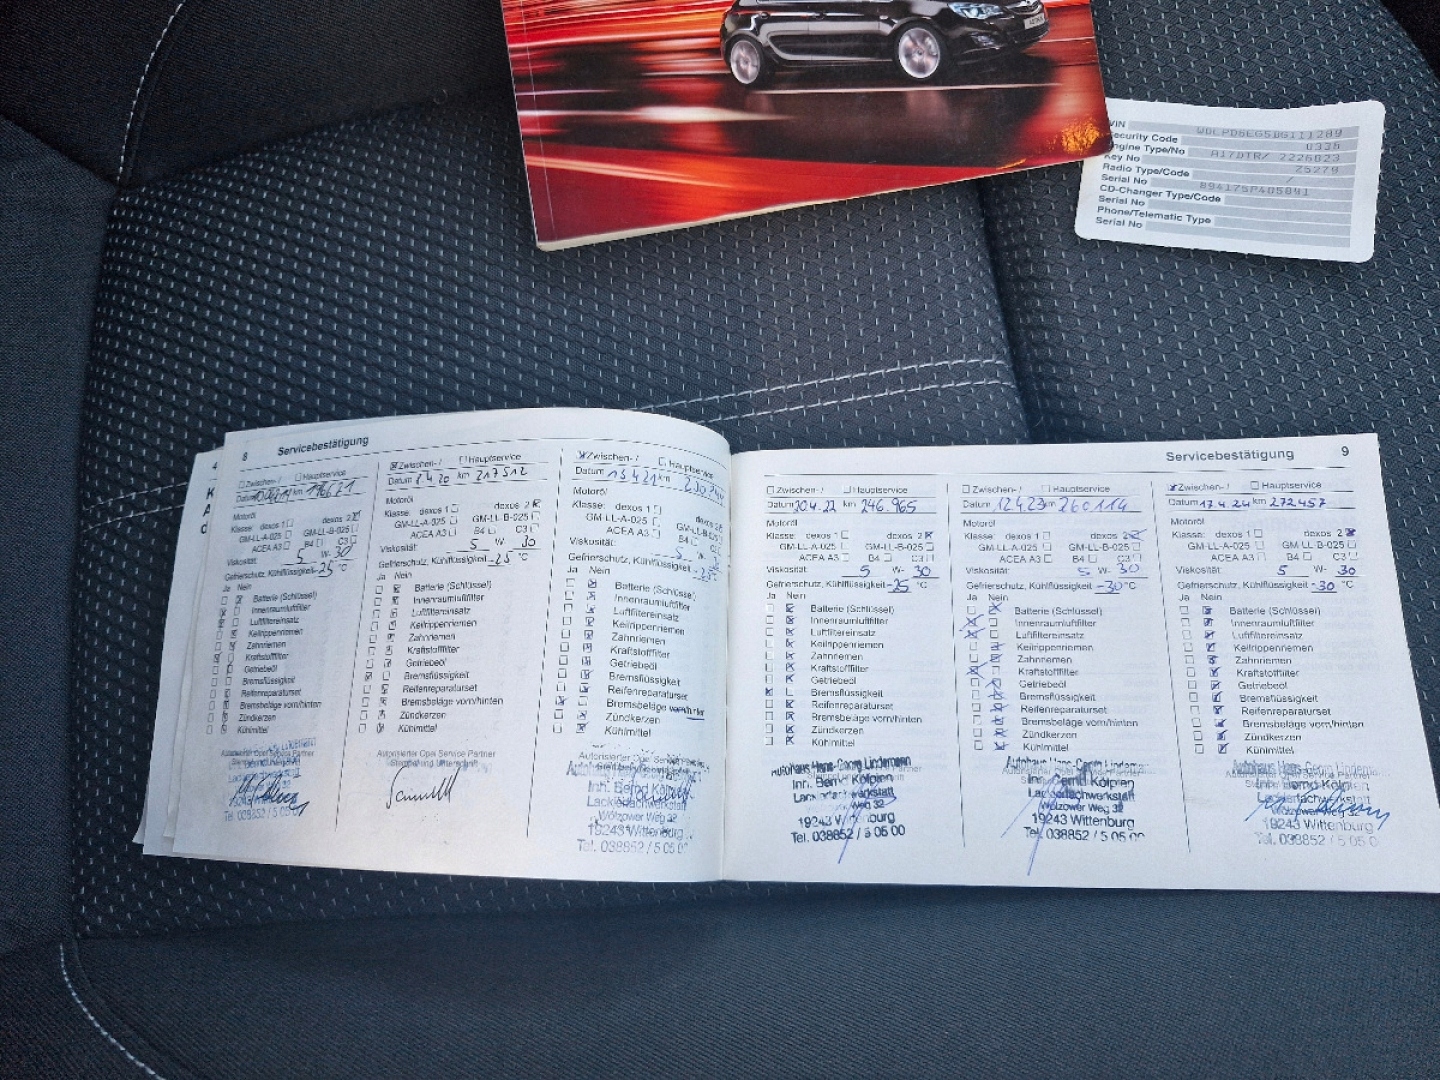 VIN
Security Code 0335
Engine Type/No A17DTR/ 2226023
Key No Z5279
Radio Type/Code /
Serial No 894175P405891
CD-Changer Type/Code
Serial No
Phone/Telematic Type
Serial No
8 Servicebestätigung
Zwischen- / Hauptservice
Datum km
Motoröl
Klasse: dexos 1 dexos 2
GM-LL-A-025 GM-LL-B-025
ACEA A3 B4 C3
Viskosität: 5 W- 30
Gefrierschutz, Kühlflüssigkeit -25 °C
Ja Nein
Batterie (Schlüssel)
Innenraumluftfilter
Luftfiltereinsatz
Keilrippenriemen
Zahnriemen
Kraftstofffilter
Getriebeöl
Bremsflüssigkeit
Reifenreparaturset
Bremsbeläge vorn/hinten
Zündkerzen
Kühlmittel
Zwischen- / Hauptservice
Datum 7.4.20 km 217512
Motoröl
Klasse: dexos 1 dexos 2
GM-LL-A-025 GM-LL-B-025
ACEA A3 B4 C3
Viskosität: 5 W- 30
Gefrierschutz, Kühlflüssigkeit -25 °C
Ja Nein
Batterie (Schlüssel)
Innenraumluftfilter
Luftfiltereinsatz
Keilrippenriemen
Zahnriemen
Kraftstofffilter
Getriebeöl
Bremsflüssigkeit
Reifenreparaturset
Bremsbeläge vorn/hinten
Zündkerzen
Kühlmittel
Autorisierter Opel Service Partner
Stempel und Unterschrift
Zwischen- / Hauptservice
Datum 15.4.21 km
Motoröl
Klasse: dexos 1 dexos 2
GM-LL-A-025 GM-LL-B-025
ACEA A3 B4 C3
Viskosität: 5
Gefrierschutz, Kühlflüssigkeit
Ja Nein
Batterie (Schlüssel)
Innenraumluftfilter
Luftfiltereinsatz
Keilrippenriemen
Zahnriemen
Kraftstofffilter
Getriebeöl
Bremsflüssigkeit
Reifenreparaturset
Bremsbeläge vorn/hinten
Zündkerzen
Kühlmittel
Inh. Bernd Kölpien
Lackierfachwerkstatt
Wölzower Weg 32
19243 Wittenburg
Tel. 038852 / 5 05 0
Servicebestätigung 9
Zwischen- / Hauptservice
Datum 20.4.22 km 246.965
Motoröl
Klasse: dexos 1 dexos 2
GM-LL-A-025 GM-LL-B-025
ACEA A3 B4 C3
Viskosität: 5 W- 30
Gefrierschutz, Kühlflüssigkeit -25 °C
Ja Nein
Batterie (Schlüssel)
Innenraumluftfilter
Luftfiltereinsatz
Keilrippenriemen
Zahnriemen
Kraftstofffilter
Getriebeöl
Bremsflüssigkeit
Reifenreparaturset
Bremsbeläge vorn/hinten
Zündkerzen
Kühlmittel
Autohaus Hans-Georg Lindemann
Inh. Bernd Kölpien
Lackierfachwerkstatt
Weg 32
19243 Wittenburg
Tel. 038852 / 5 05 00
Zwischen- / Hauptservice
Datum 12.4.23 km 260114
Motoröl
Klasse: dexos 1 dexos 2
GM-LL-A-025 GM-LL-B-025
ACEA A3 B4 C3
Viskosität: 5 W- 30
Gefrierschutz, Kühlflüssigkeit -30 °C
Ja Nein
Batterie (Schlüssel)
Innenraumluftfilter
Luftfiltereinsatz
Keilrippenriemen
Zahnriemen
Kraftstofffilter
Getriebeöl
Bremsflüssigkeit
Reifenreparaturset
Bremsbeläge vorn/hinten
Zündkerzen
Kühlmittel
Autohaus Hans-Georg Lindemann
Inh. Bernd Kölpien
Lackierfachwerkstatt
Wölzower Weg 32
19243 Wittenburg
Tel. 038852 / 5 05 00
Zwischen- / Hauptservice
Datum 17.4.24 km 272.457
Motoröl
Klasse: dexos 1 dexos 2
GM-LL-A-025 GM-LL-B-025
ACEA A3 B4 C3
Viskosität: 5 W- 30
Gefrierschutz, Kühlflüssigkeit -30 °C
Ja Nein
Batterie (Schlüssel)
Innenraumluftfilter
Luftfiltereinsatz
Keilrippenriemen
Zahnriemen
Kraftstofffilter
Getriebeöl
Bremsflüssigkeit
Reifenreparaturset
Bremsbeläge vorn/hinten
Zündkerzen
Kühlmittel
Autohaus Hans-Georg Lindemann
Inh. Bernd Kölpien
Lackierfachwerkstatt
Wölzower Weg 32
19243 Wittenburg
Tel. 038852 / 5 05 0